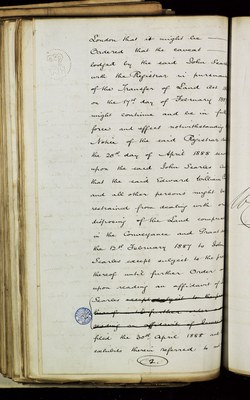 London that it might be
Ordered that the caveat
lodged by the said John Searles
with the Registrar in pursuance
of the Transfer of Land Act
on the 17th day of February 188
might continue and be in full
force and effect notwithstanding
Notice of the said Registrar
the 20th day of April 1888
upon the said John Searles
that the said Edward William
and all other persons might be
restrained from dealing with or
disposing of the Land comprised
in the Conveyance and
the 12th February 1887 to John
Searles except subject to the
thereof until further Order
upon reading an affidavit of
Searles except only to the
thereof until further order
reading an affidavit of
filed the 30th April 1888 and
exhibits therein referred to
2.